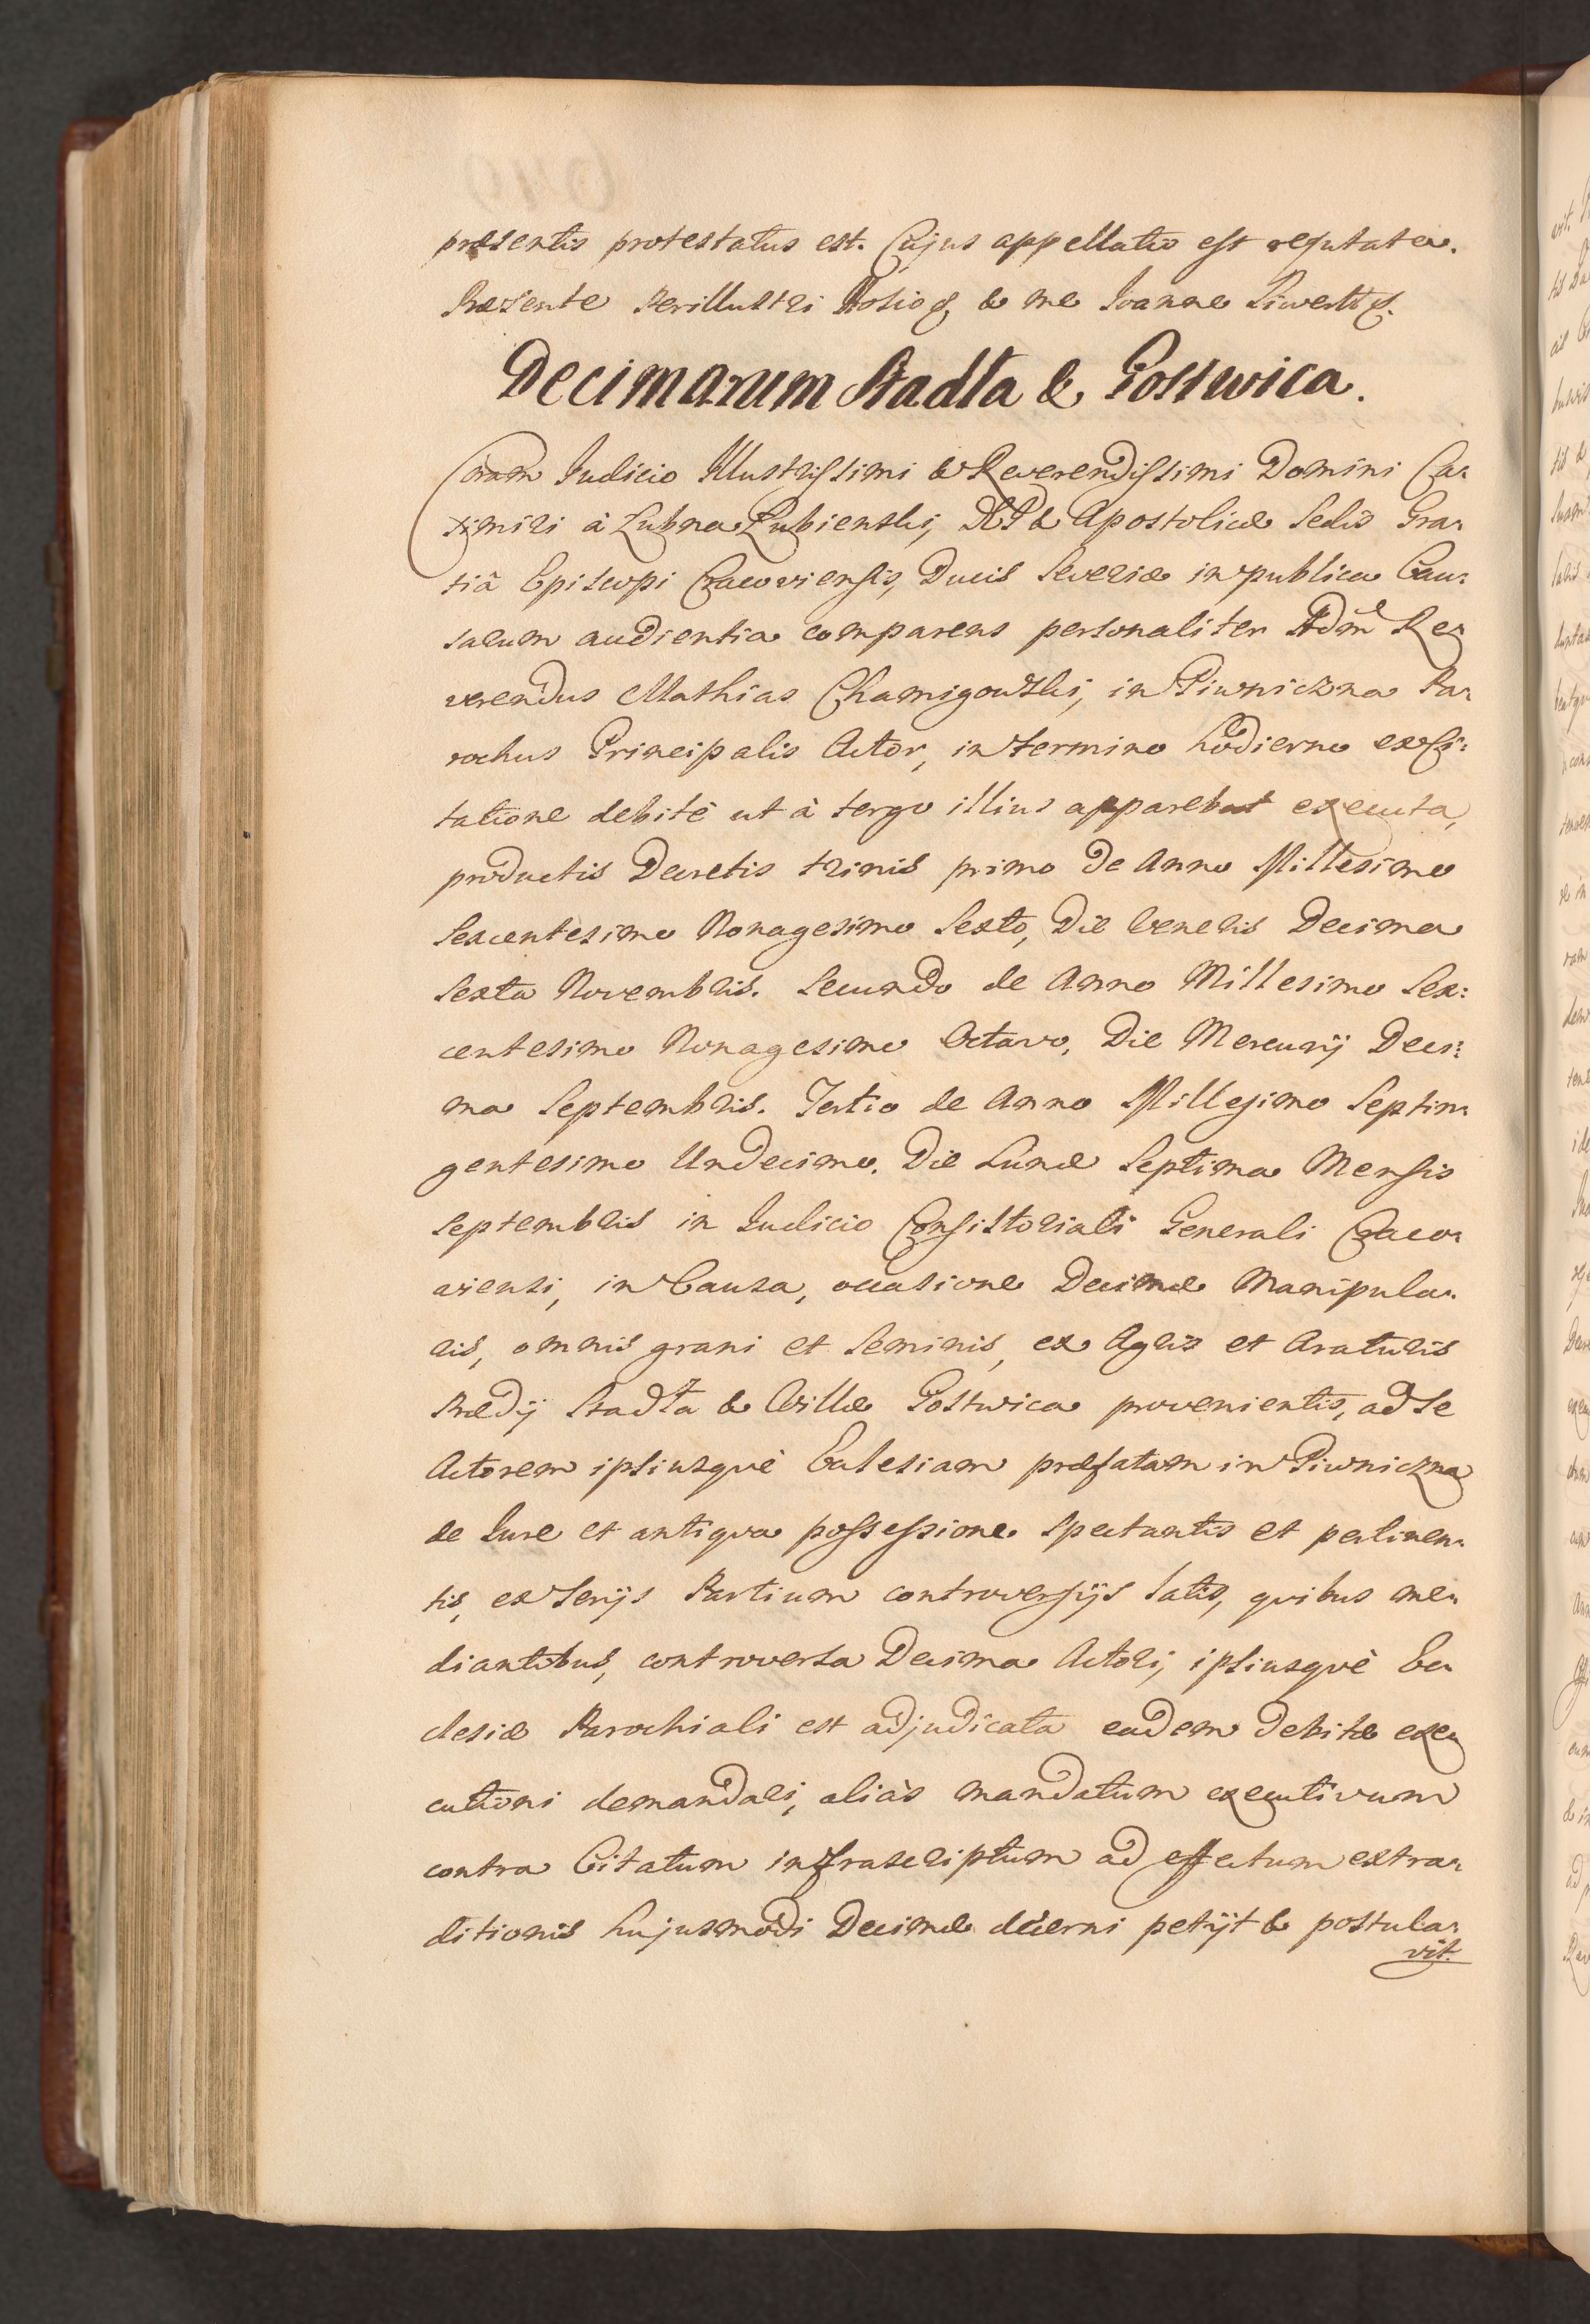 præsentis protestatus est. Cujus appellatio est refutata.
Præsente Perillustri Hosio & me Joanne
Decimarum Stadła & Gostwica.
Coram Iudicio Illustrissimi & Reverendissimi Domini Ca:
simiri à Łubna Łubienski, D G & Apostolicæ Sedis Gra:
tiâ Episcopi Cracoviensis, Ducis Severiæ in publica Cau:
sarum audientia comparens personaliter Adm Re:
verendus Mathias Chamigowski, in Piwniczna Pa:
rochus Principalis Actor, in termino hodierno ex Ci:
tatione debitè ut à tergo illius apparebat executa,
productis Decretis trinis primo de Anno Millesimo
Sexcentesimo Nonagesimo Sexto, Die Veneris Decima
Sexta Novembris. Secundo de Anno Millesimo Sex:
centesimo Nonagesimo Octavo, Die Mercurij Deci:
ma Septembris. Tertio de Anno Millesimo Septin:
gentesimo Undecimo. Die Lunæ Septima Mensis
Septembris in Iudicio Consistoriali Generali Craco:
viensi, in Causa, occasione Decimæ Manipula:
ris, omnis grani et Seminis, ex Agris et Araturis
Prædij Stadła & Villæ Gostwica provenientis, ad Se
Actorem ipsiusquè Ecclesiam præfatam in Piwniczna
de Iure et antiqva possessione spectantis et pertinen:
tis, ex Serijs Partium controversijs latis, qvibus me:
diantibus, controversa Decima Actori, ipsiusqvè Ec:
clesiæ Parochiali est adjudicata eadem debitæ exe:
cutioni demandari, aliàs mandatum executivum
contra Citatum infrascriptum ad effectum extra:
ditionis hujusmodi Decimæ decerni petijt & postula:
vit.